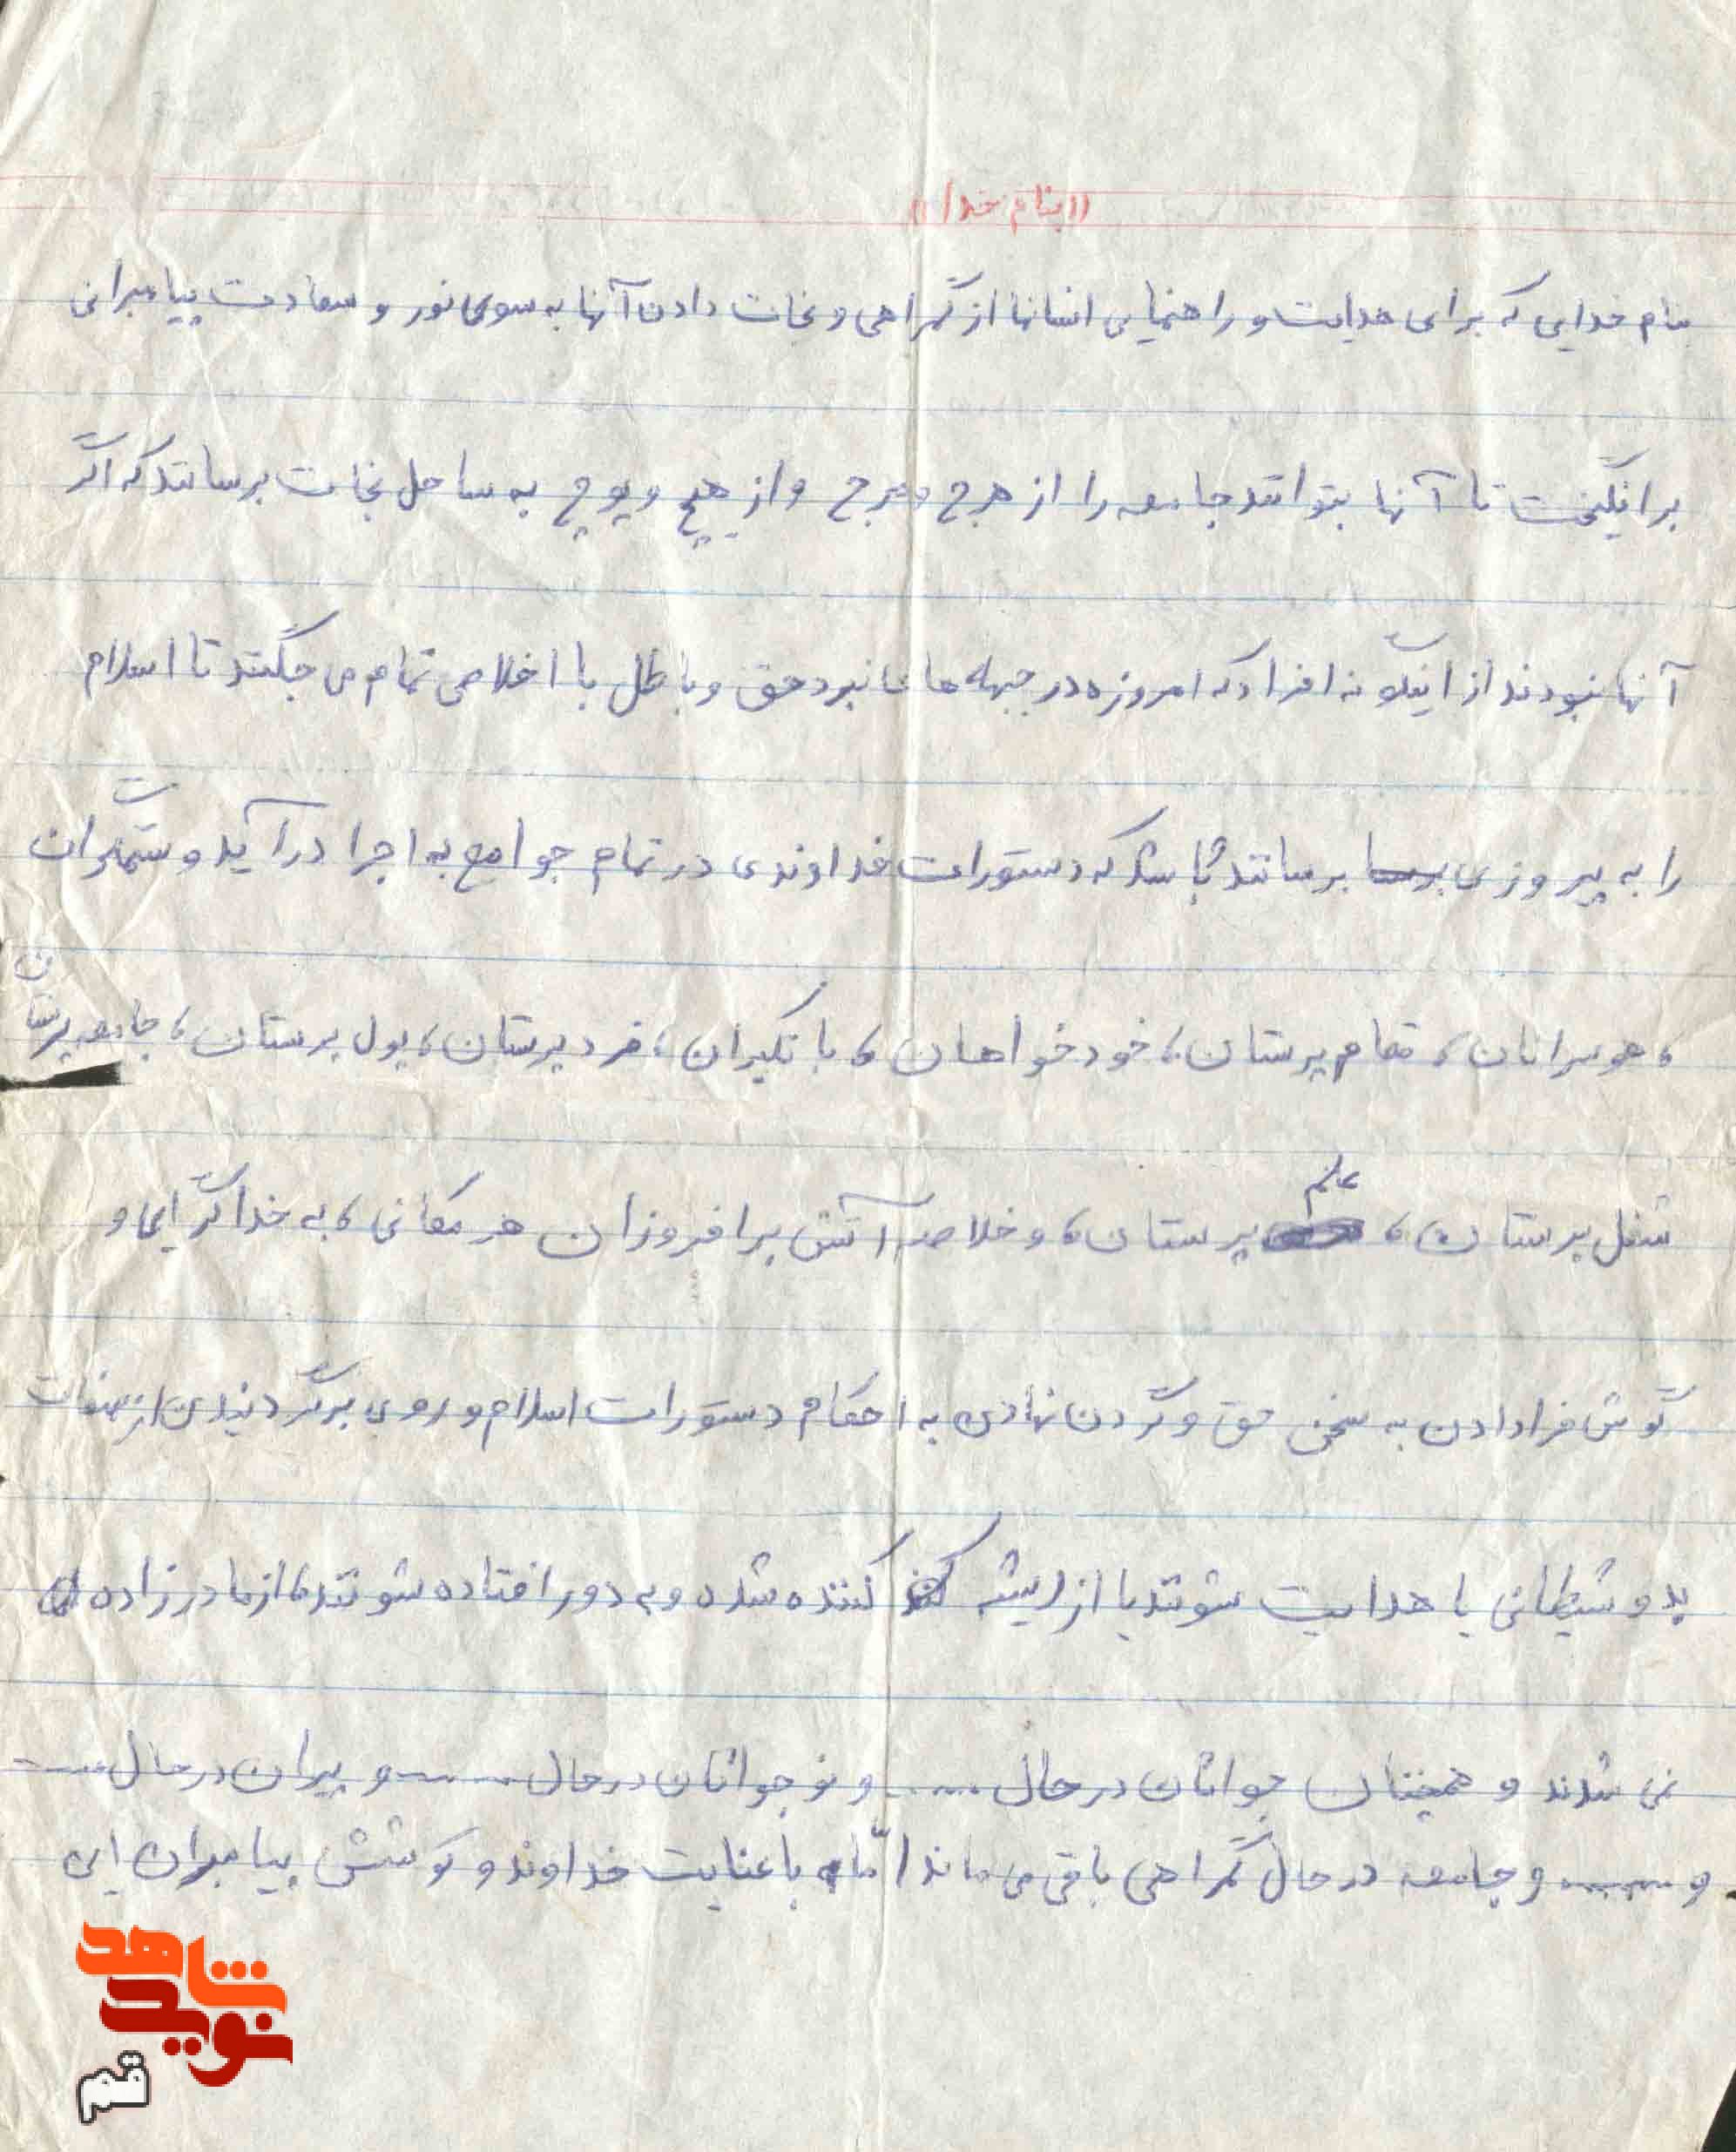 ((بنام خدا))
بنام خدایی که برای هدایت و راهنمایی انسانها از گمراهی و نجات دادن آنها به سوی نور و سعادت پیامبرانی
برانگیخت تا آنها بتوانند جامعه را از هرج و مرج و از هیچ و پوچ به ساحل نجات برسانند که اگر
آنها نبودند از اینگونه افراد که امروزه در جبهه های نبرد حق و باطل با اخلاص تمام می جنگند تا اسلام
را به پیروزی برسانند باشد که دستورات خداوندی در تمام جوامع به اجرا درآید و ستمگران
، هوسرانان ، مقام پرستان ، خودخواهان ، فرد پرستان ، پول پرستان ، جامعه پرستان
شغل پرستان ، علم پرستان ، و خلاصه آتش برافروزان هر مکانی ، به خداگرایی و
گوش فرا دادن به سخن حق و گردن نهادن به احکام دستورات اسلام و روی برگردنیدن از صفات
بد و شیطانی یا هدایت شوند یا از ریشه کننده شده و به دور افتاده شوند ، از مادر زاده
نمی شدند و همچنان جوانان در حال ...... و نوجوانان در حال ...... و پیران در حال ......
و ...... و جامعه در حال گمراهی باقی می ماند امّا با عنایت خداوند و کوشش پیامبران این
شاهد
نوید
قم